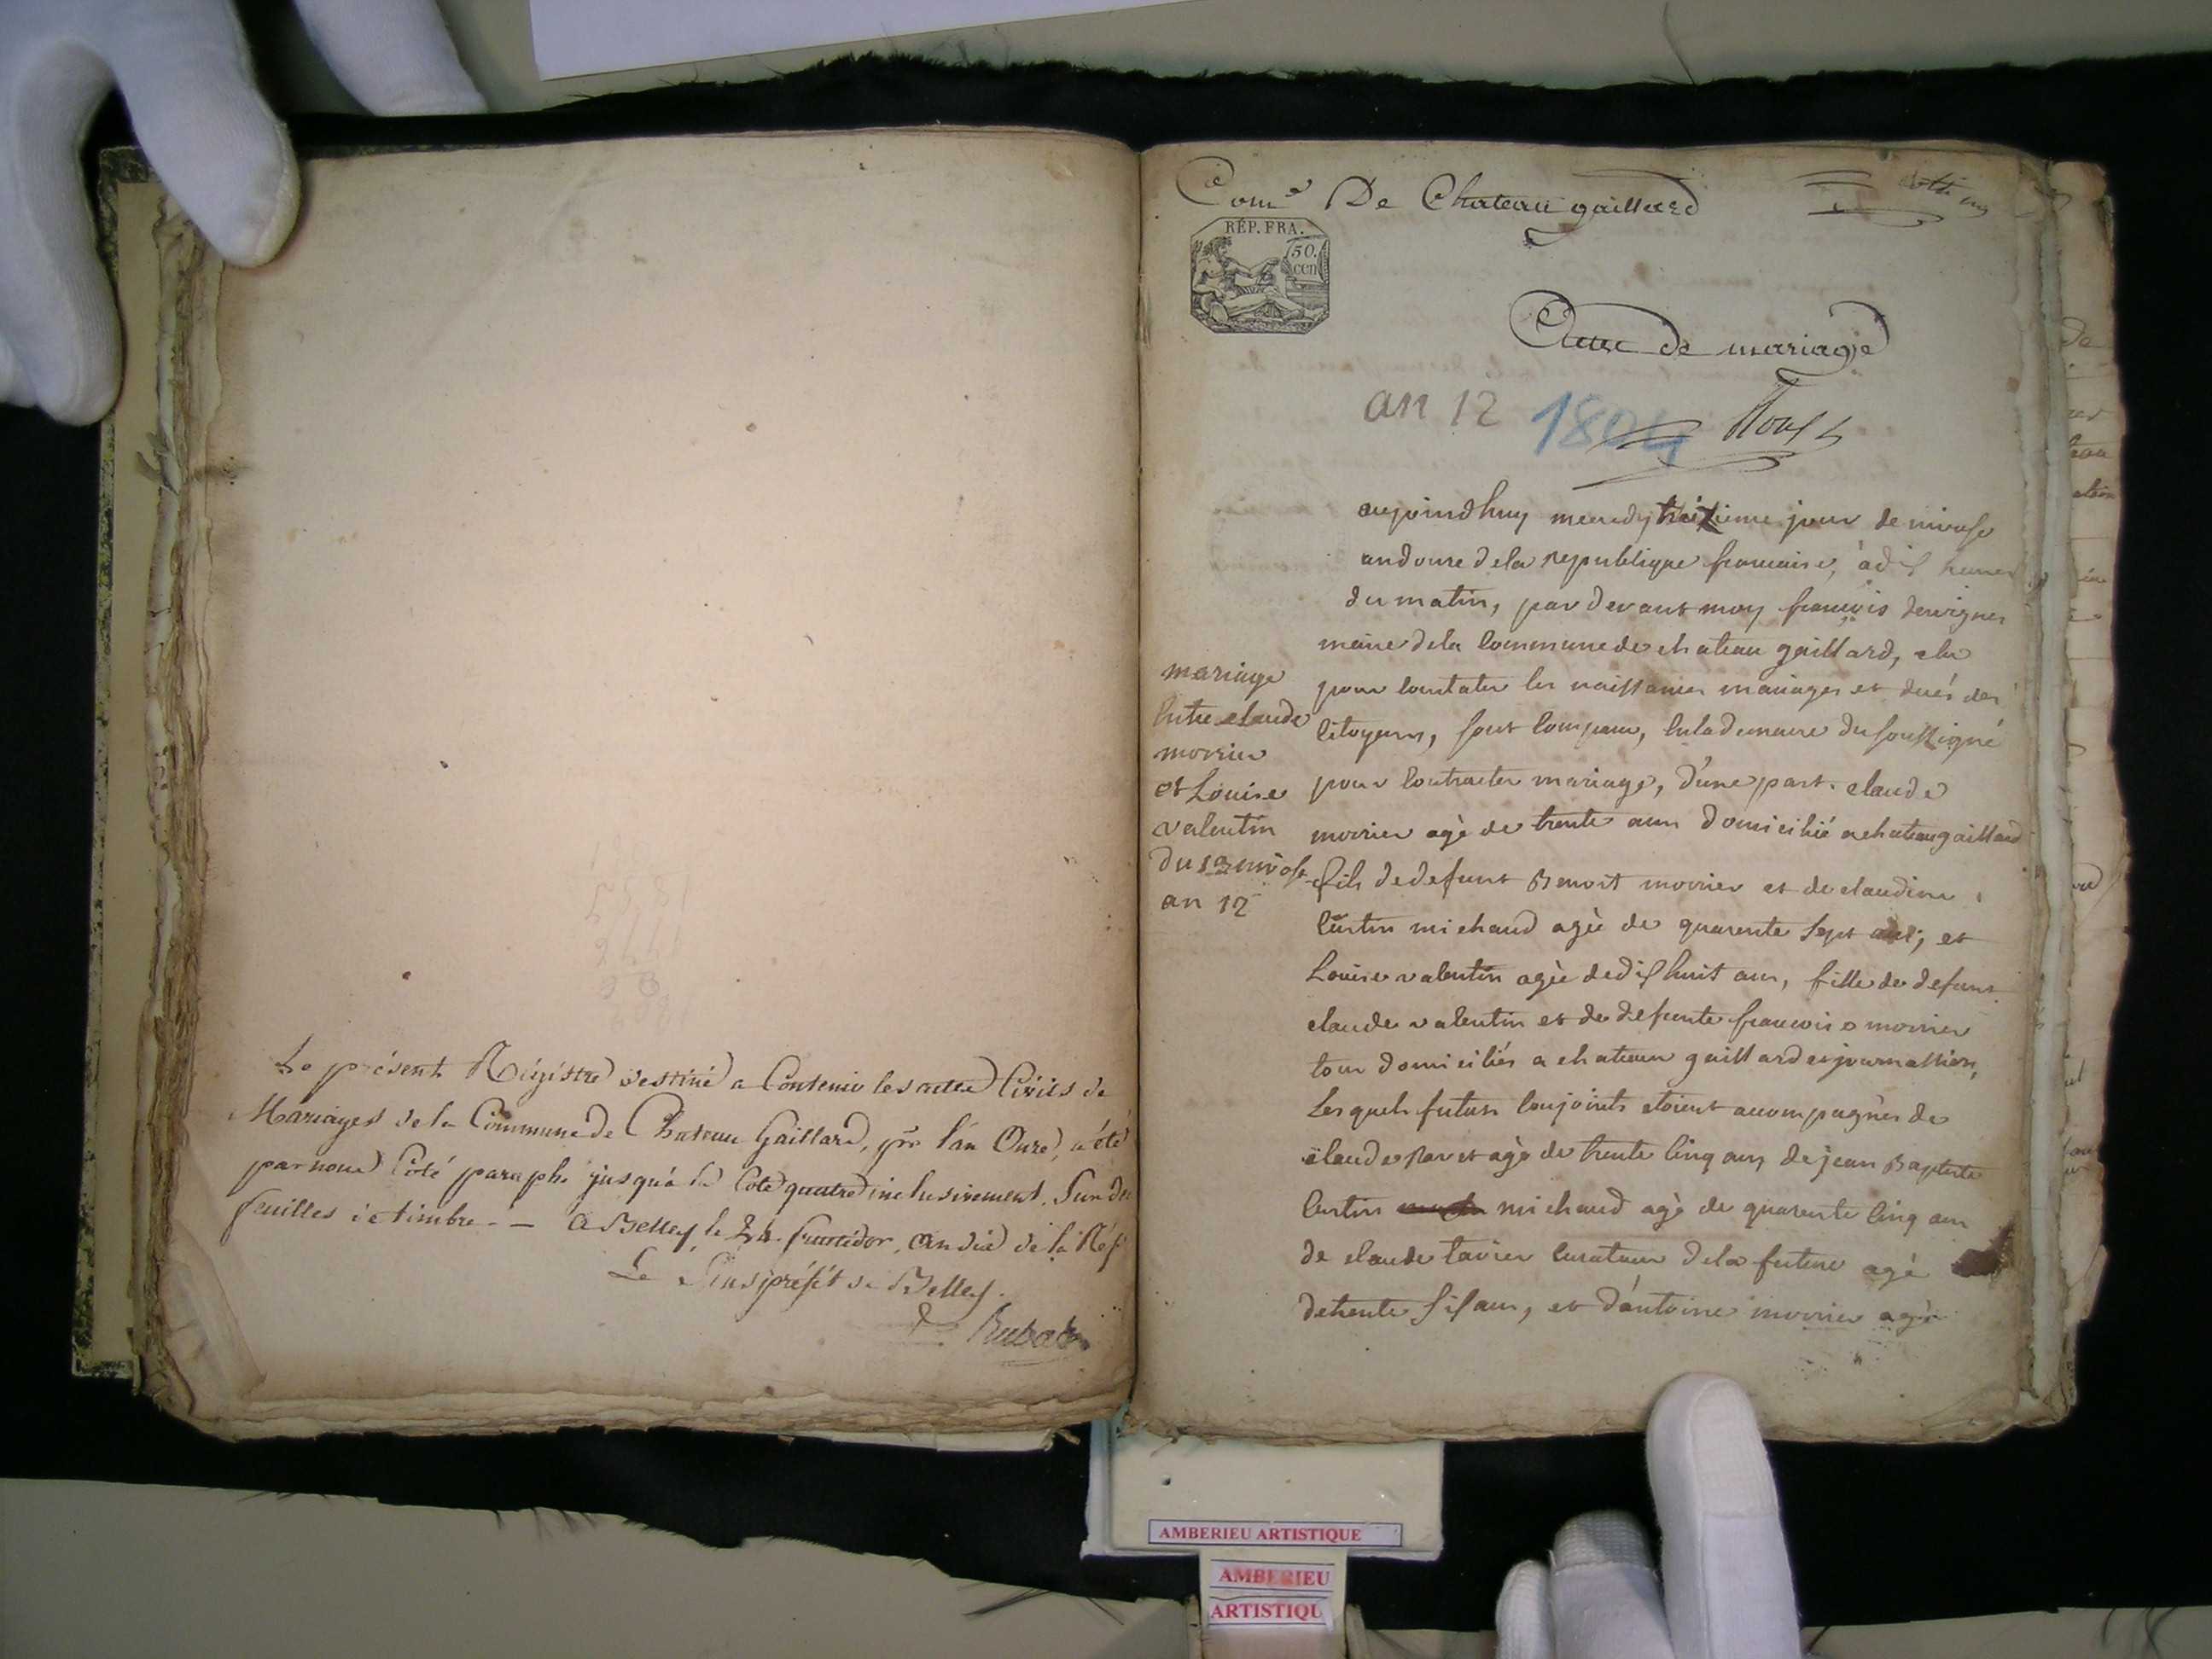 Le présent Régistre destiné a Contenir les actes Civils de
Mariages de la Commune de Chateau Gaillard, pr l'an Onze, a été
par nous Coté paraphé jusqu'à la Cote quatre inclusivement. Sur
feuilles de timbre - — A Belley, le 24 fructidor, an dix de la Rép
Le Sous préfêt de Belley.
Rubat
Come De Chateau gaillard
RÉP. FRA.
50.
cen
Acte de mariage
an 12 1804
aujourdhuy mecredy treizieme jour de nivose
an douze de la republique francaise, à dix heures
du matin, par devant moy françois dervignes
maire de la Commune de chateau gaillard, elu
pour Constater les naissances mariages et decés des
Citoyens, sont Comparu, En la demeure du soussigné
pour Contracter mariage, d'une part. claude
morrier agè de trente ans domicilié a chateau gaillard
fils de defunt Benoit morrier et de claudine
Curtin michaud agèe de quarente sept ans; et
Louise valentin agèe de dix huit ans, fille de defunt
claude valentin et de defunte francoise morrier
tous domiciliés a chateau gaillard es journalliers,
Les quels futurs Conjoints etoient accompagnès de
claude agè de trente Cinq ans, de jean Baptiste
Curtin michaud agè de quarente Cinq ans
de claude tavier Curateur de la future agè
de trente six ans, et d'antoine morrier agè
mariage
Entre claude
morrier
et Louise
valentin
du 13 nivose
an 12
AMBERIEU ARTISTIQUE
AMBERIEU
ARTISTIQU